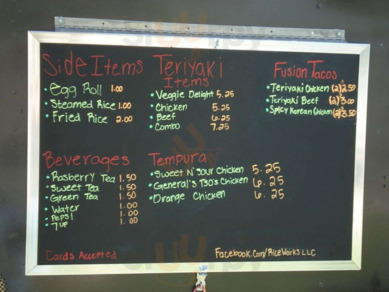 Side Items
Egg Roll 1.00
Steamed Rice 1.00
Fried Rice 2.00
Teriyaki
Items
Veggie Delight 5.25
Chicken 5.25
Beef 6.25
Combo 7.25
Fusion Tacos
Teriyaki Chicken (2) 2.50
Teriyaki Beef (2) 3.00
Spicy Korean Chicken (2) 3.50
Beverages
Rasberry Tea 1.50
Sweet Tea 1.50
Green Tea 1.50
Water 1.00
Pepsi 1.00
7 up 1.00
Tempura
Sweet N' Sour Chicken 5.25
General's TSO's Chicken 6.25
Orange Chicken 6.25
Cards Accepted
Facebook.Com/RiceWorks LLC